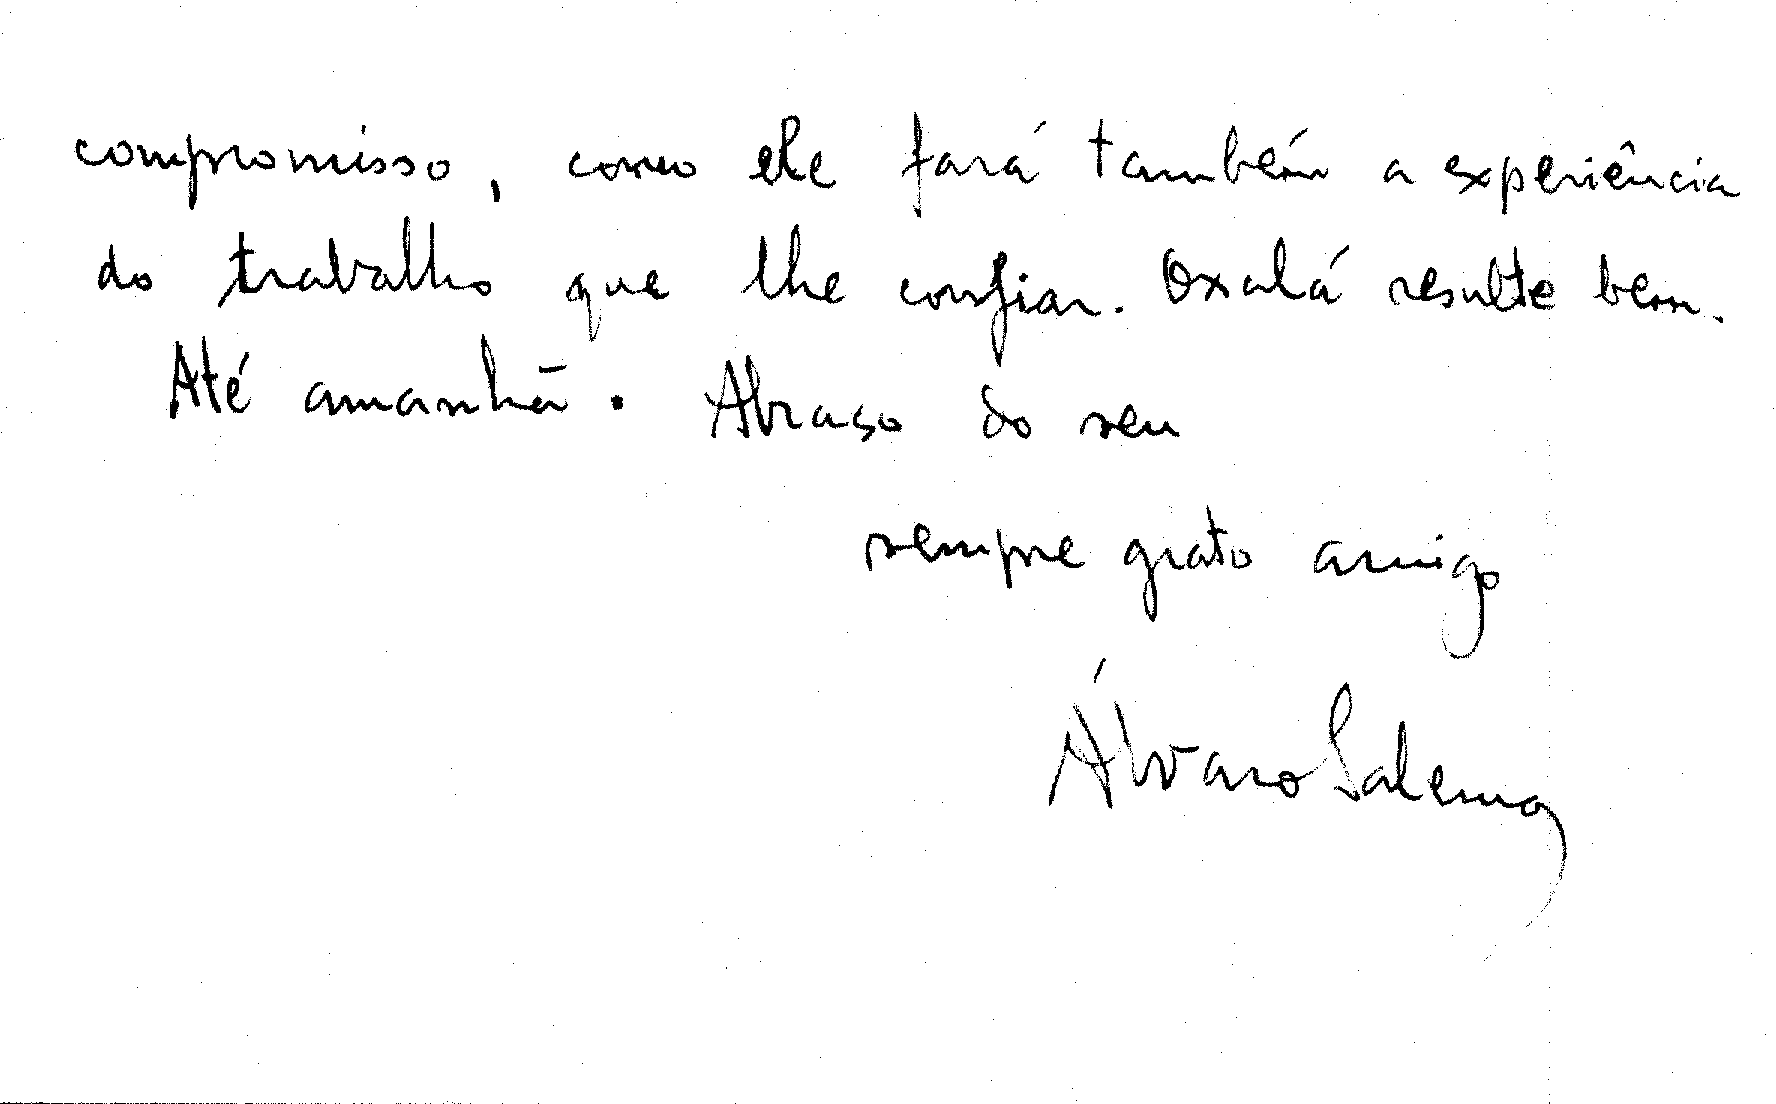 compromisso, como ele fará também a experiência
do trabalho que lhe confiar. Oxalá resulte bem.
Até amanhã. Abraço do seu
sempre grato amigo
Álvaro Salema